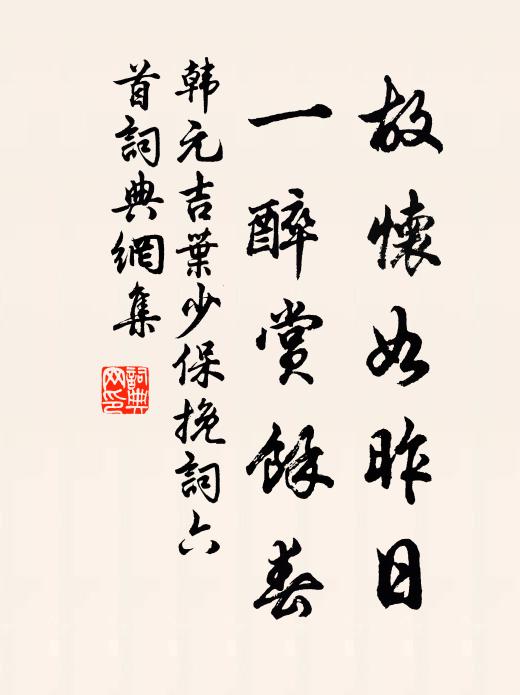 故懷如昨日
一醉賞餘春
韩元吉葉少保挽詞六
首詞典網集
詞典網印